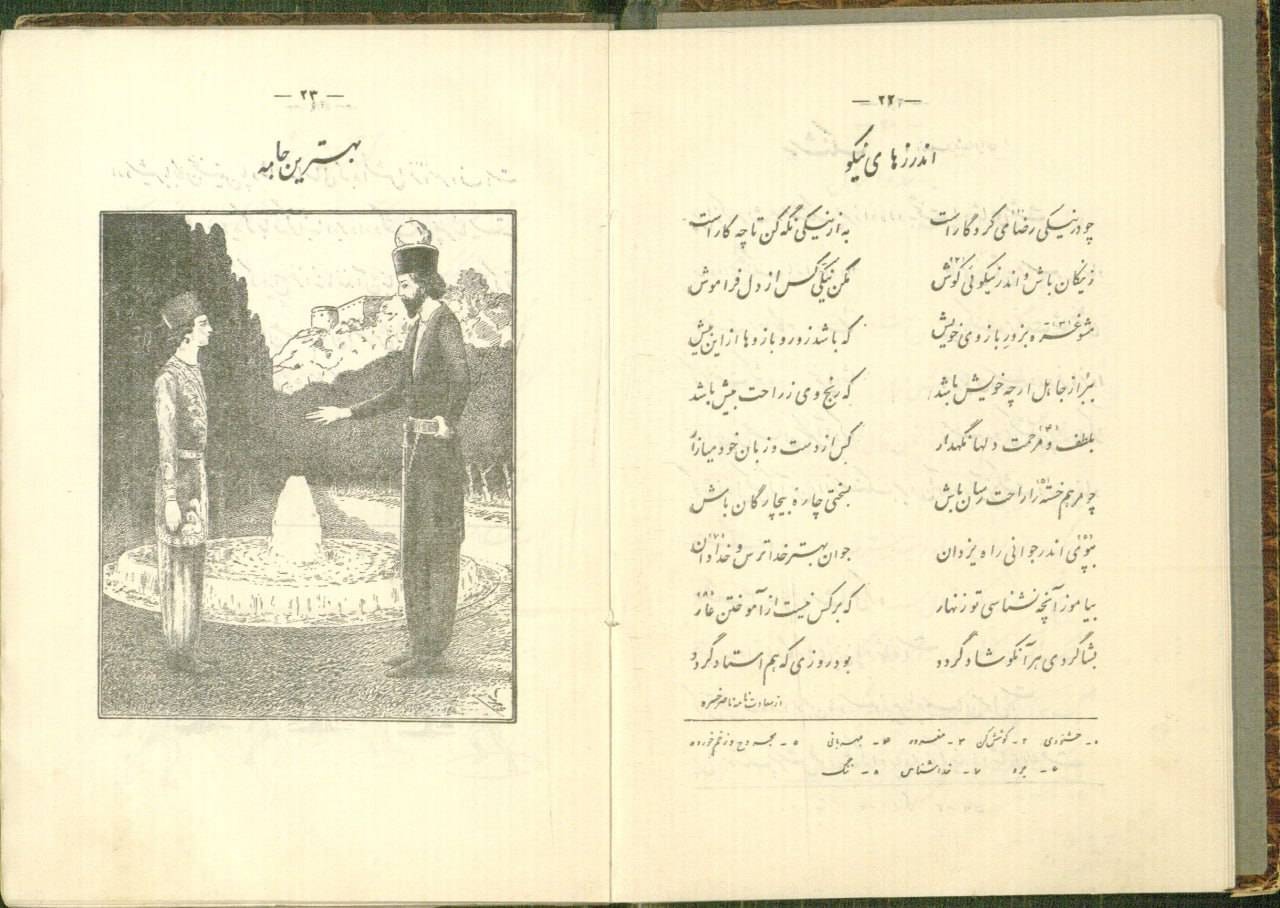 — ۲۲ —
اندرزهای نیکو
چو در نیکی رضای کردگار است به از نیکی نگه کن تا چه کار است
ز نیکان باش و اندر نیکوئی کوش مکن نیکی کس از دل فراموش
مشو غره بزور بازوی خویش که باشد زور و بازوها از این بیش
ببر از جاهل ار چه خویش باشد که رنج وی ز راحت بیش باشد
بلطف و مرحمت دلها نگهدار کس از دست و زبان خود میازار
چو مرهم خسته را راحت رسان باش بسختی چاره بیچارگان باش
بپوی اندر جوانی راه یزدان جوان بهتر خداترس و خدادان
بیاموز آنچه نشناسی تو زنهار که بر کس نیست از آموختن عار
بشاگردی هر آنکو شاد گردد بود روزی که هم استاد گردد
از سعادت نامه ناصرخسرو
۱ - خشنودی ۲ - کوشش کن ۳ - مغرور ۴ - مهربانی ۵ - مجروح و زخم خورده
۶ - برو ۷ - خداشناس ۸ - ننگ
— ۲۳ —
بهترین جامه